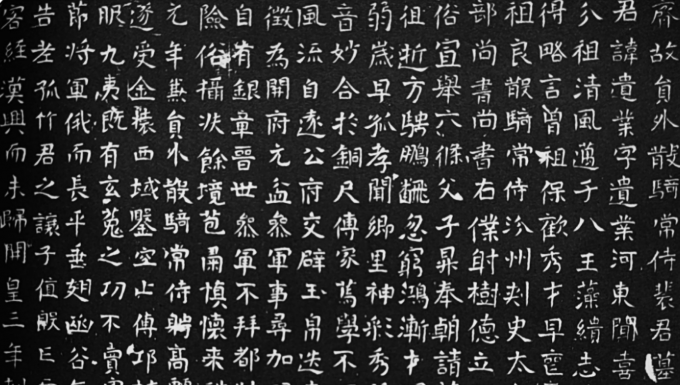 齋故員外散騎常侍裴君墓
君諱遺業字遺業河東聞喜
分祖清風邁于八王藻繢志
得略言曾祖保歡秀才早
祖良散騎常侍汾州刾史太
部尚書尚書右僕射樹德立
俗宣舉六條父子昇奉朝請
祖逝方騁鵬翩忽窮鴻漸
弱歲早孤孝聞鄉里神彩秀
音妙合於銅尺傳家篤學不
風流自遠公府交辟玉帛迭
徵為開府元孟參軍事尋加
自有銀章晉世參軍不拜都
險俗攝次餘境苞慎懷來
元年兼員外散騎常侍聘高
遂受金穰西域鑿空止傳邛
服九夷既有玄菟之功不實
節將軍俄而長平垂翅函谷
告老孤竹君之讓子值殷亡
客經漢興而未歸開皇三年